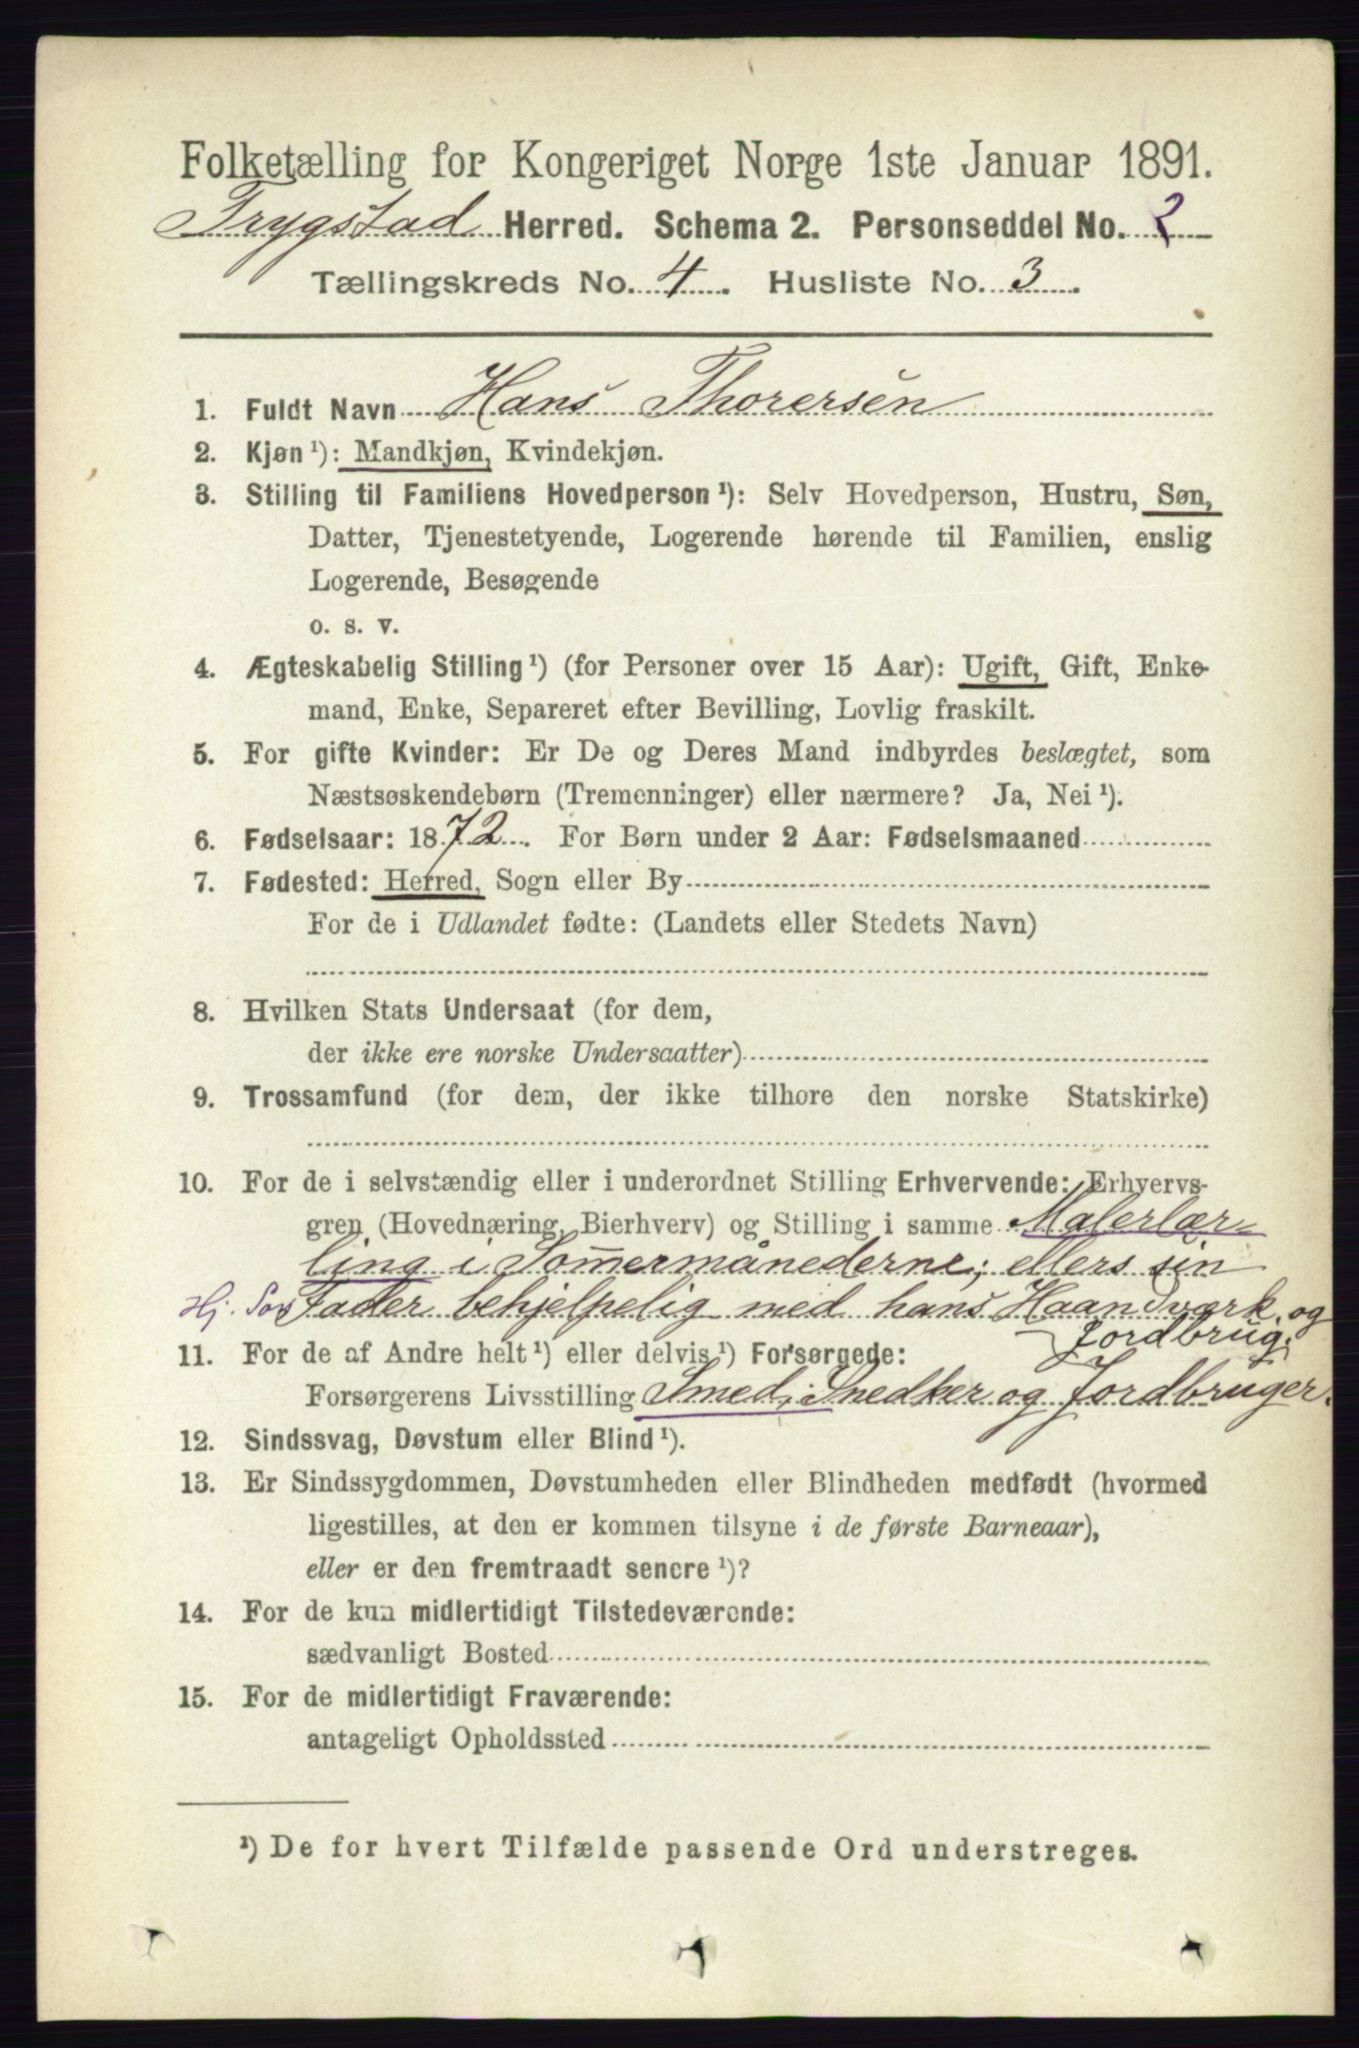 Folketælling for Kongeriget Norge 1ste Januar 1891.
Trygstad Herred. Schema 2. Personseddel No. 2
Tællingskreds No. 4. Husliste No. 3.
1. Fuldt Navn Hans Thorersen
2. Kjøn ¹): Mandkjøn, Kvindekjøn.
3. Stilling til Familiens Hovedperson ¹): Selv Hovedperson, Hustru, Søn,
Datter, Tjenestetyende, Logerende hørende til Familien, enslig
Logerende, Besøgende
o. s. v.
4. Ægteskabelig Stilling ¹) (for Personer over 15 Aar): Ugift, Gift, Enke-
mand, Enke, Separeret efter Bevilling, Lovlig fraskilt.
5. For gifte Kvinder: Er De og Deres Mand indbyrdes beslægtet, som
Næstsøskendebørn (Tremenninger) eller nærmere? Ja, Nei ¹).
6. Fødselsaar: 1872. For Børn under 2 Aar: Fødselsmaaned
7. Fødested: Herred, Sogn eller By
For de i Udlandet fødte: (Landets eller Stedets Navn)
8. Hvilken Stats Undersaat (for dem,
der ikke ere norske Undersaatter)
9. Trossamfund (for dem, der ikke tilhøre den norske Statskirke)
10. For de i selvstændig eller i underordnet Stilling Erhvervende: Erhvervs-
gren (Hovednæring, Bierhverv) og Stilling i samme Malerlær-
ling i Sommermånederne; ellers sin
Hj. Søn Fader behjelpelig med hans Haandværk og
Jordbrug.
11. For de af Andre helt ¹) eller delvis ¹) Forsørgede:
Forsørgerens Livsstilling Smed, Snedker og Jordbruger.
12. Sindssvag, Døvstum eller Blind ¹).
13. Er Sindssygdommen, Døvstumheden eller Blindheden medfødt (hvormed
ligestilles, at den er kommen tilsyne i de første Barneaar),
eller er den fremtraadt senere ¹)?
14. For de kun midlertidigt Tilstedeværende:
sædvanligt Bosted
15. For de midlertidigt Fraværende:
antageligt Opholdssted
¹) De for hvert Tilfælde passende Ord understreges.